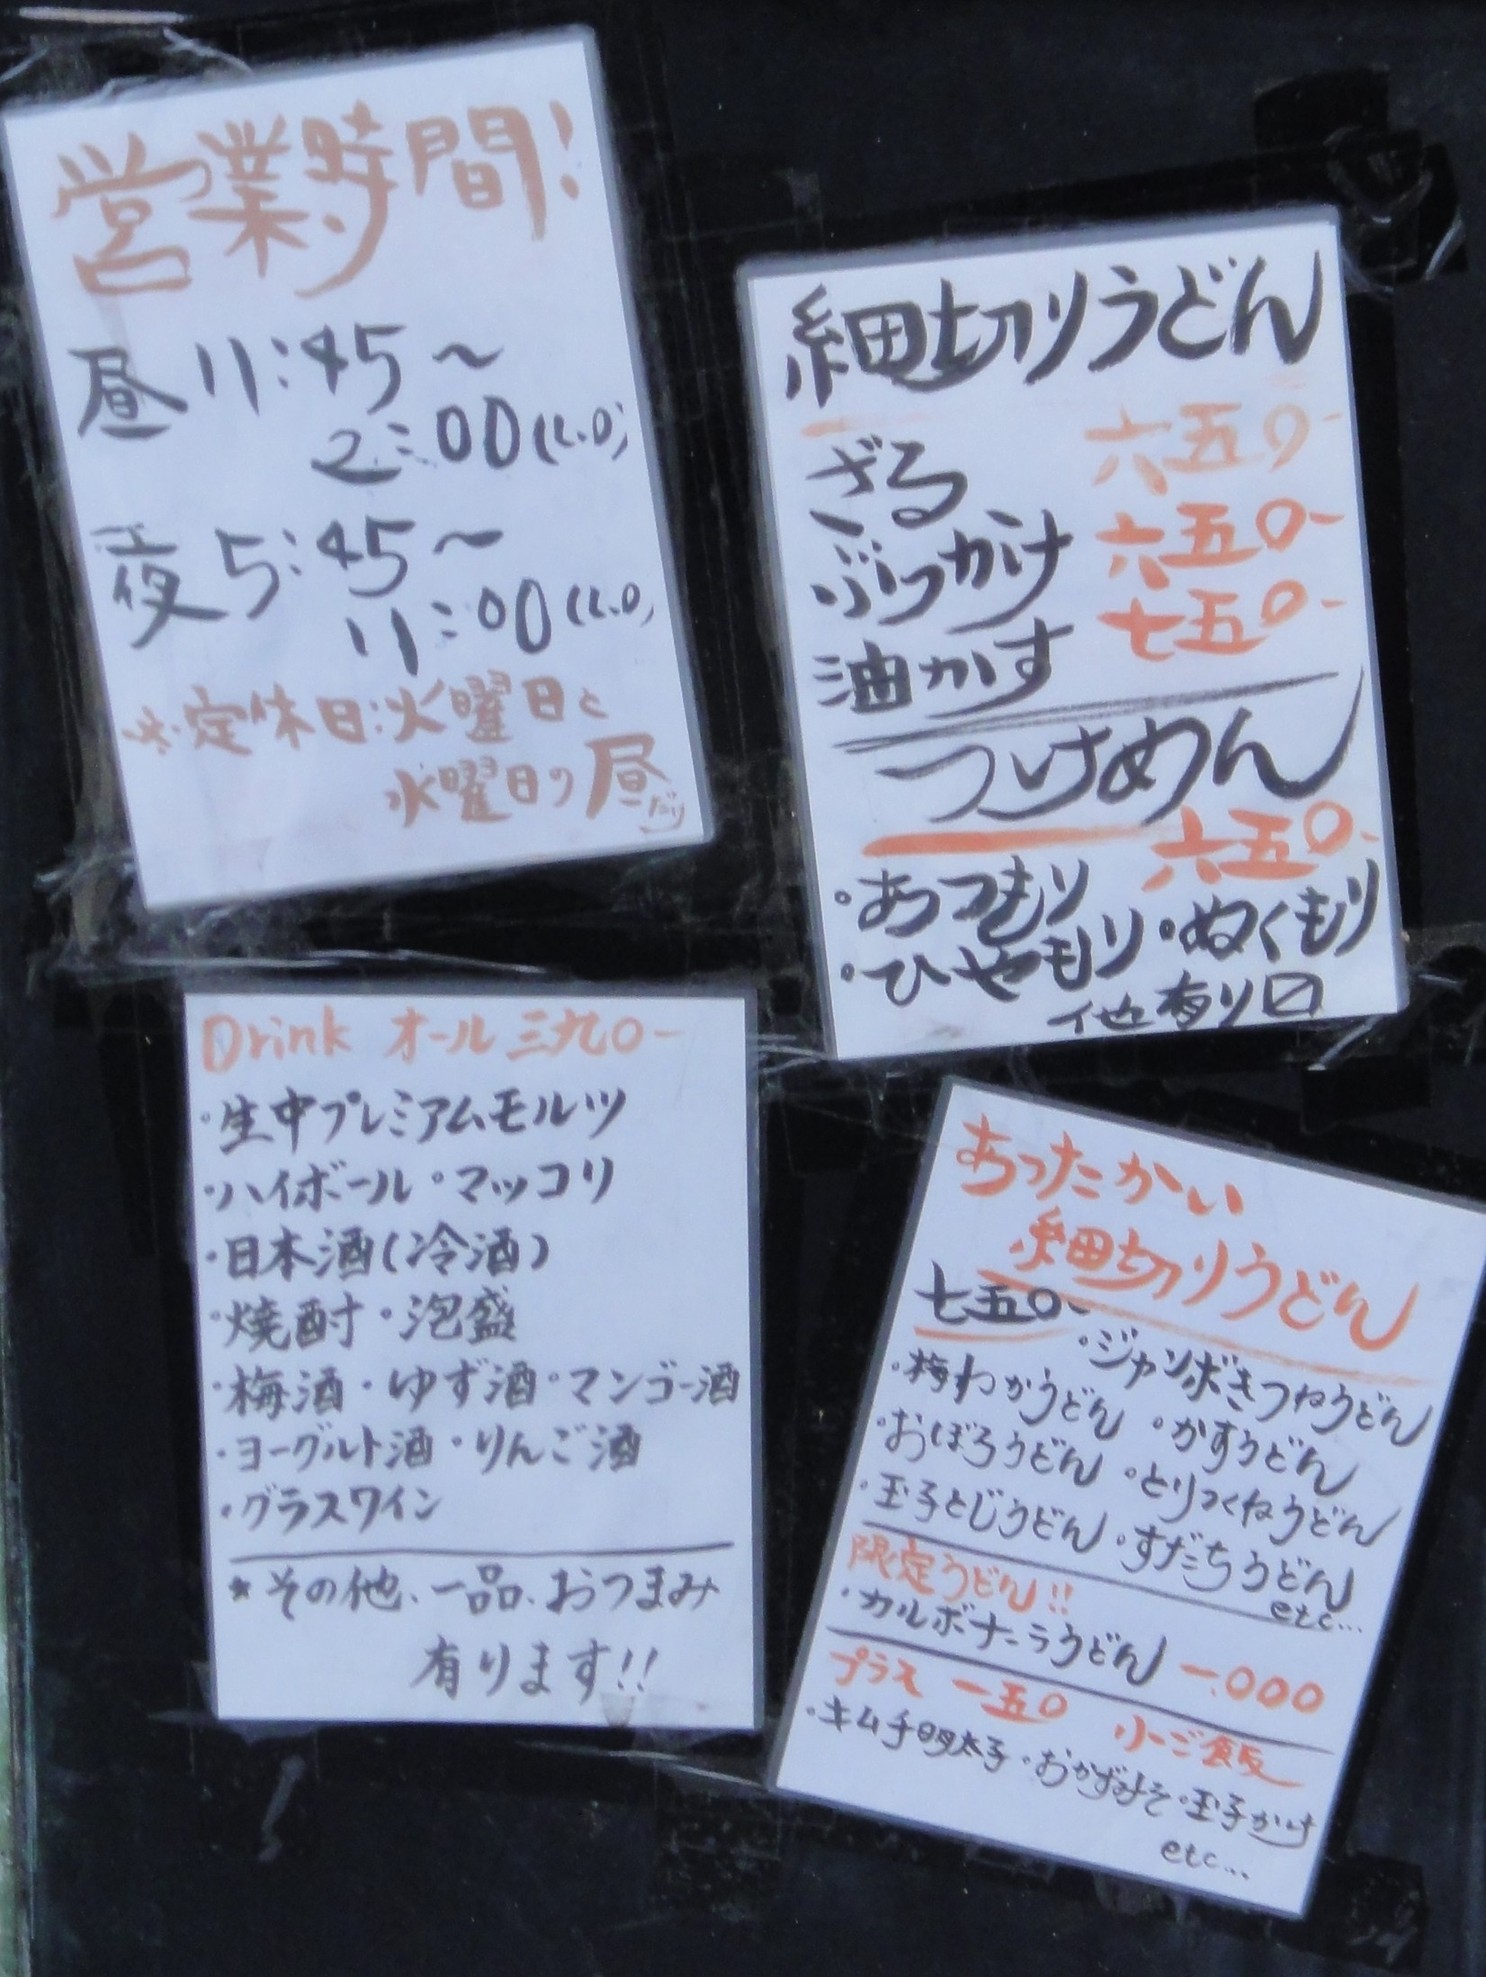 営業時間!
昼 11:45〜
2:00(L.O)
夜 5:45〜
11:00(L.O)
※定休日:火曜日と
水曜日の昼だけ
細切りうどん
ざる 六五〇-
ぶっかけ 六五〇-
油かす 七五〇-
つけめん
六五〇-
・あつもり
・ひやもり・ぬくもり
他有り〼
Drink オール三九〇-
・生中プレミアムモルツ
・ハイボール・マッコリ
・日本酒(冷酒)
・焼酎・泡盛
・梅酒・ゆず酒・マンゴー酒
・ヨーグルト酒・りんご酒
・グラスワイン
*その他、一品、おつまみ
有ります!!
あったかい
細切りうどん
七五〇-
・ジャンボきつねうどん
・梅わかうどん・かすうどん
・おぼろうどん・とりつくねうどん
・玉子とじうどん・すだちうどん
etc...
限定うどん!!
・カルボナーラうどん 一.〇〇〇
プラス 一五〇 小ご飯
・キムチ明太子・おかずみそ・玉子かけ
etc...